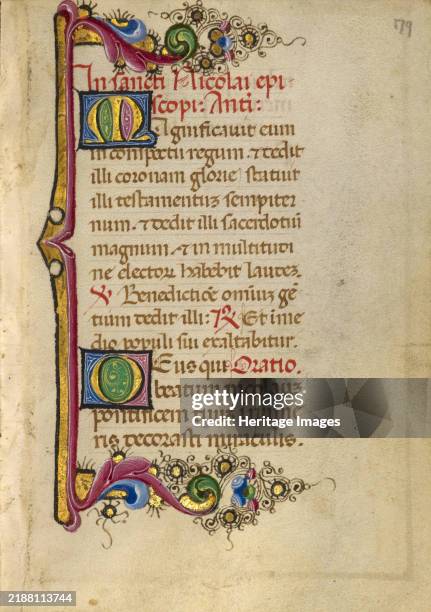 179
In sancti Nicolai epi
scopi: Anti:
Magnificavit eum
in conspectu regum. & dedit
illi coronam glorie / statuit
illi testamentum sempiter
num. & dedit illi sacerdotiū
magnum. & in multitudi
ne electorꝝ habebit laudeз.
℣ Benedictiōē omiuз gē
tium dedit illi: ℟ Et i me
dio populi sui exaltabitur.
Deus qui Oratio.
beatum
pontificem
ris decorasti miraculis.
Heritage Images
gettyimages
2188113744